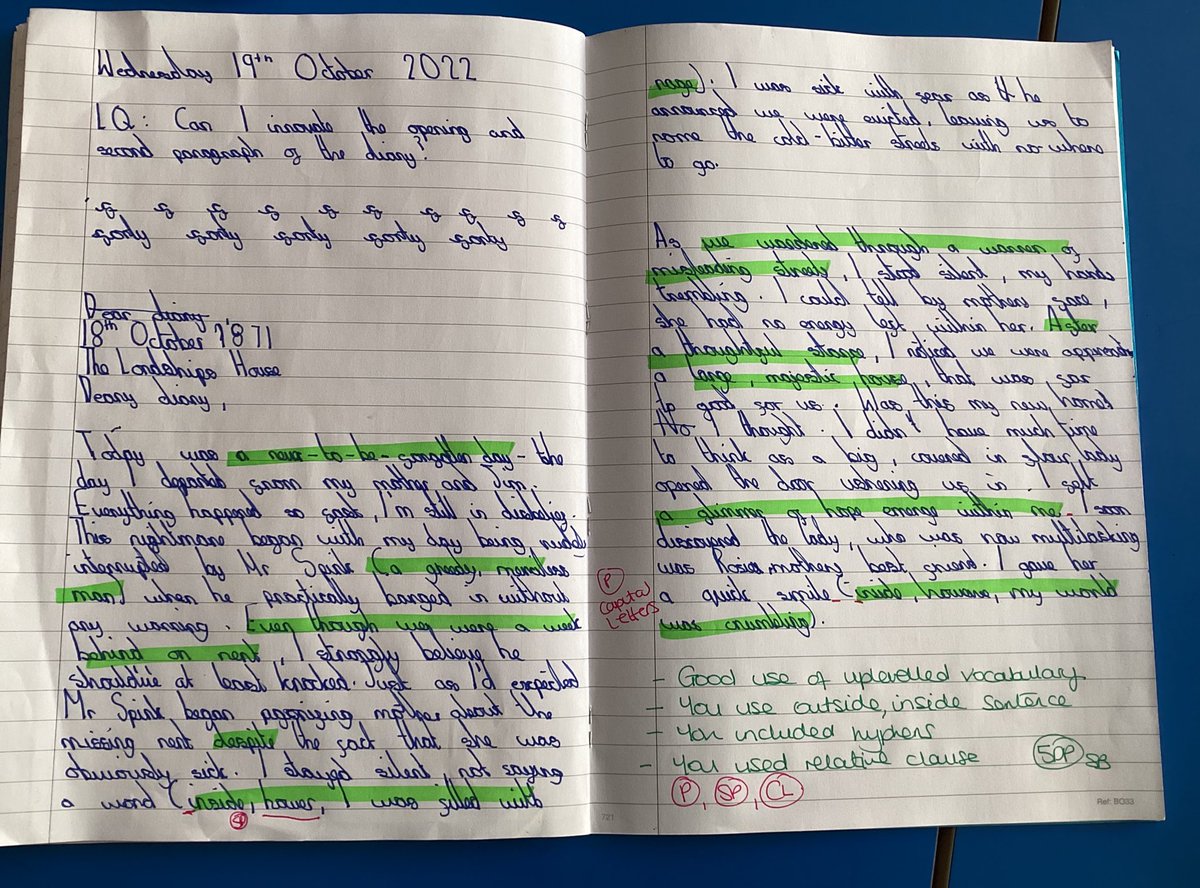 Wednesday 19th October 2022
LQ: Can I innovate the opening and
second paragraph of the diary?
Dear diary
18th October 1871
The Landships House
Deary diary,
Today was a never-to-be-forgotten day - the
day I departed from my mother and Jim.
Everything happened so fast, I'm still in disbelief.
This nightmare began with my day being rudely
interrupted by Mr Spink (a greedy, merciless
man) when he practically banged in without
any warning. Even though wey were a week
behind on rent, I strongly believe he
should've at least knocked. Just as I'd expected
Mr Spink began mother about the
missing rent despite the fact that she was
obviously sick. I stayed silent not saying
a word (inside, hover, I was filled with
sp
721
rage). I was sick with fear as he
announced we were evicted, leaving us to
rome the cold-bitter streets with no where
to go.
As we wandered through a warren of
misleading streets, I stood silent, my hands
trembling. I could tell by mothers face,
she had no energy left within her. After
a thoughtful, I noticed we were
a large, majestic house, that was far
to good for us. Was this my new home?
No I thought. I didn't have much time
to think as a big, covered in flour lady
opened the door ushering us in. I felt
a glimmer of hope emerge within me. I soon
discovered the lady, who was now multitasking
was Rosia, mothers best friend. I gave her
a quick smile (inside, however, my world
was crumbling).
P
capital
letters
- Good use of uplevelled vocabulary
- You use outside, inside sentence
- You included hyphens
- You used relative clause
P, SP, CL
Ref: BO33